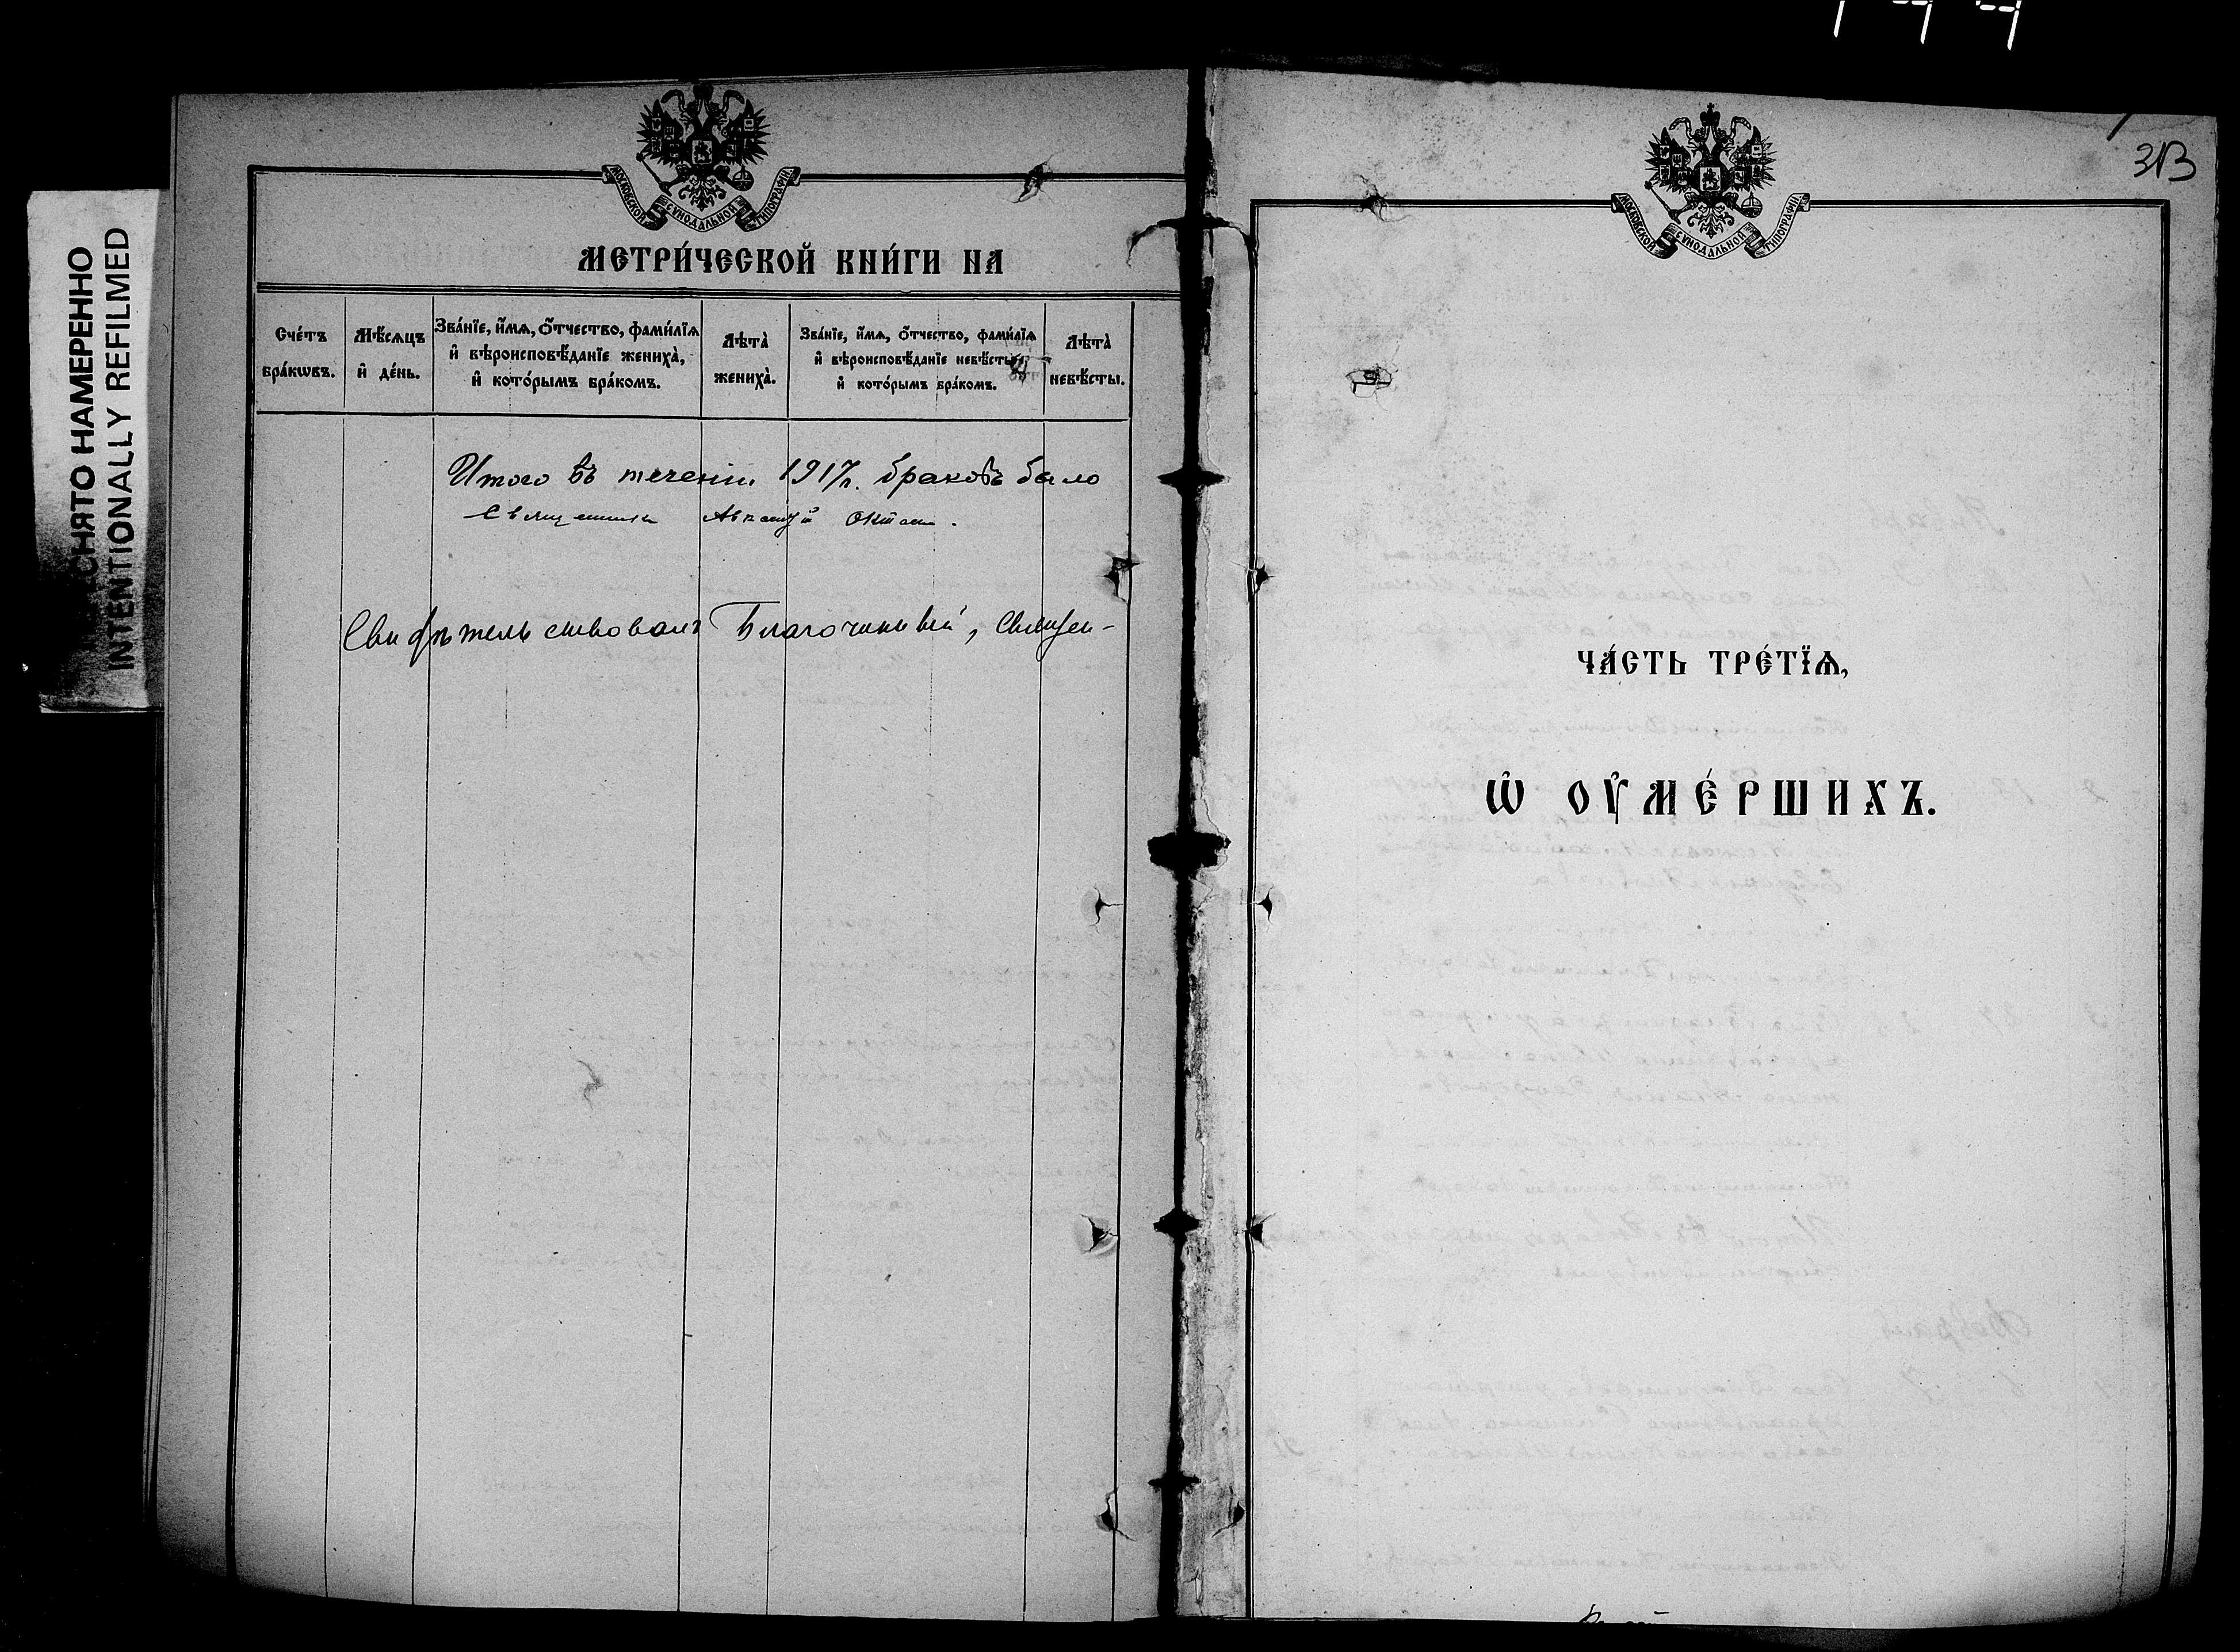 СНЯТО НАМЕРЕННО
INTENTIONALLY REFILMED
МОСКОВСКОЙ СѴНОДАЛЬНОЙ ТИПОГРАФІИ
МЕТРИ́ЧЕСКОЙ КНИ́ГИ НА
Сче́тъ бра́кѡвъ.
Мѣ́сяцъ и҆ де́нь.
Зва́нїе, и҆́мѧ, ѻ҆́тчество, фами́лїѧ
и҆ вѣроисповѣ́данїе жениха̀,
и҆ кото́рымъ бра́комъ.
Лѣта̀ жениха̀.
Зва́нїе, и҆́мѧ, ѻ҆́тчество, фами́лїѧ
и҆ вѣроисповѣ́данїе невѣ́сты,
и҆ кото́рымъ бра́комъ.
Лѣта̀ невѣ́сты.
Итого въ теченіи 1917г. браковъ было
Священникъ
Свидѣтельствовалъ Благочинный, Священ-
313
МОСКОВСКОЙ СѴНОДАЛЬНОЙ ТИПОГРАФІИ
ЧА́СТЬ ТРЕ́ТЇѦ,
Ѡ҆ ОУ҆МЕ́РШИХЪ.